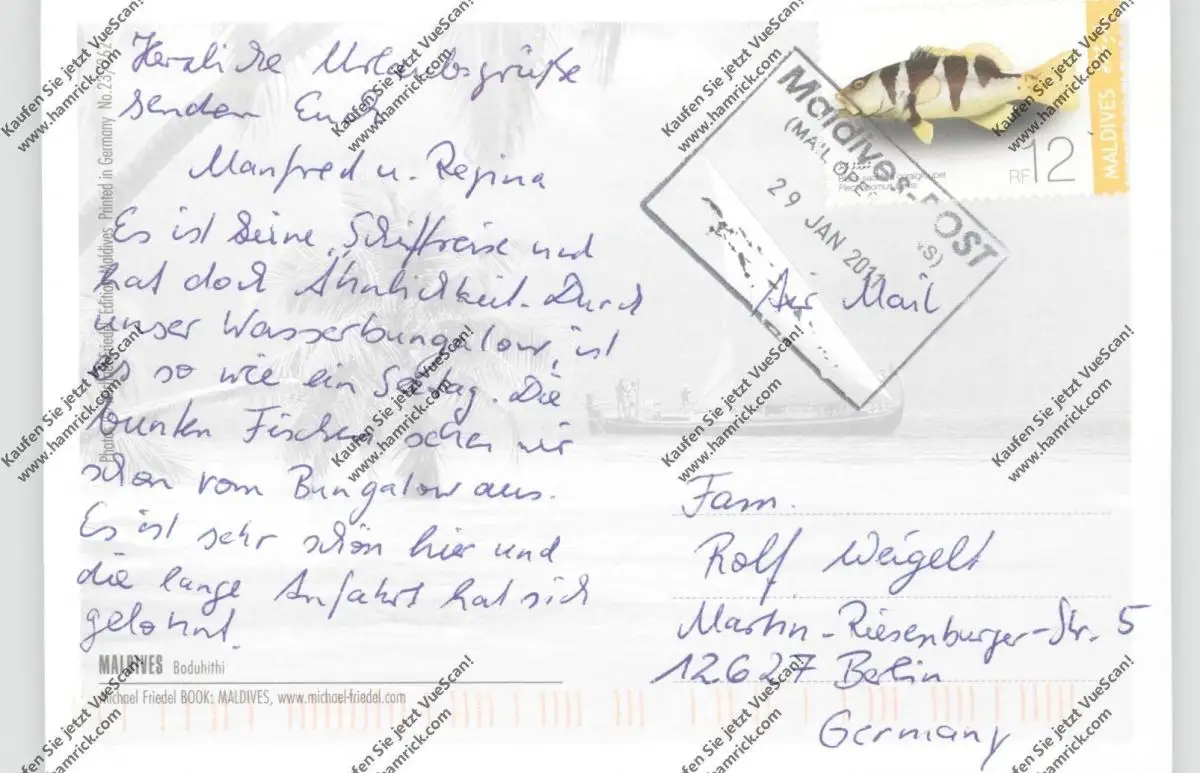 Herzliche Urlaubsgrüße
senden Euch
Manfred u. Regina
Es ist keine Schiffreise und
hat doch Ähnlichkeit. Durch
unser Wasserbungalow, ist
es so wie ein Seetag. Die
bunten Fische sehen wir
schon vom Bungalow aus.
Es ist sehr schön hier und
die lange Anfahrt hat sich
gelohnt.
MALDIVES Boduhithi
Michael Friedel BOOK: MALDIVES, www.michael-friedel.com
Edition Maldives Printed in Germany
MALDIVES
RF 12
Maldives-POST
29 JAN 2011
Air Mail
Fam.
Rolf Weigelt
Martin-Riesenburger-Str. 5
12627 Berlin
Germany
Kaufen Sie jetzt VueScan!
www.hamrick.com